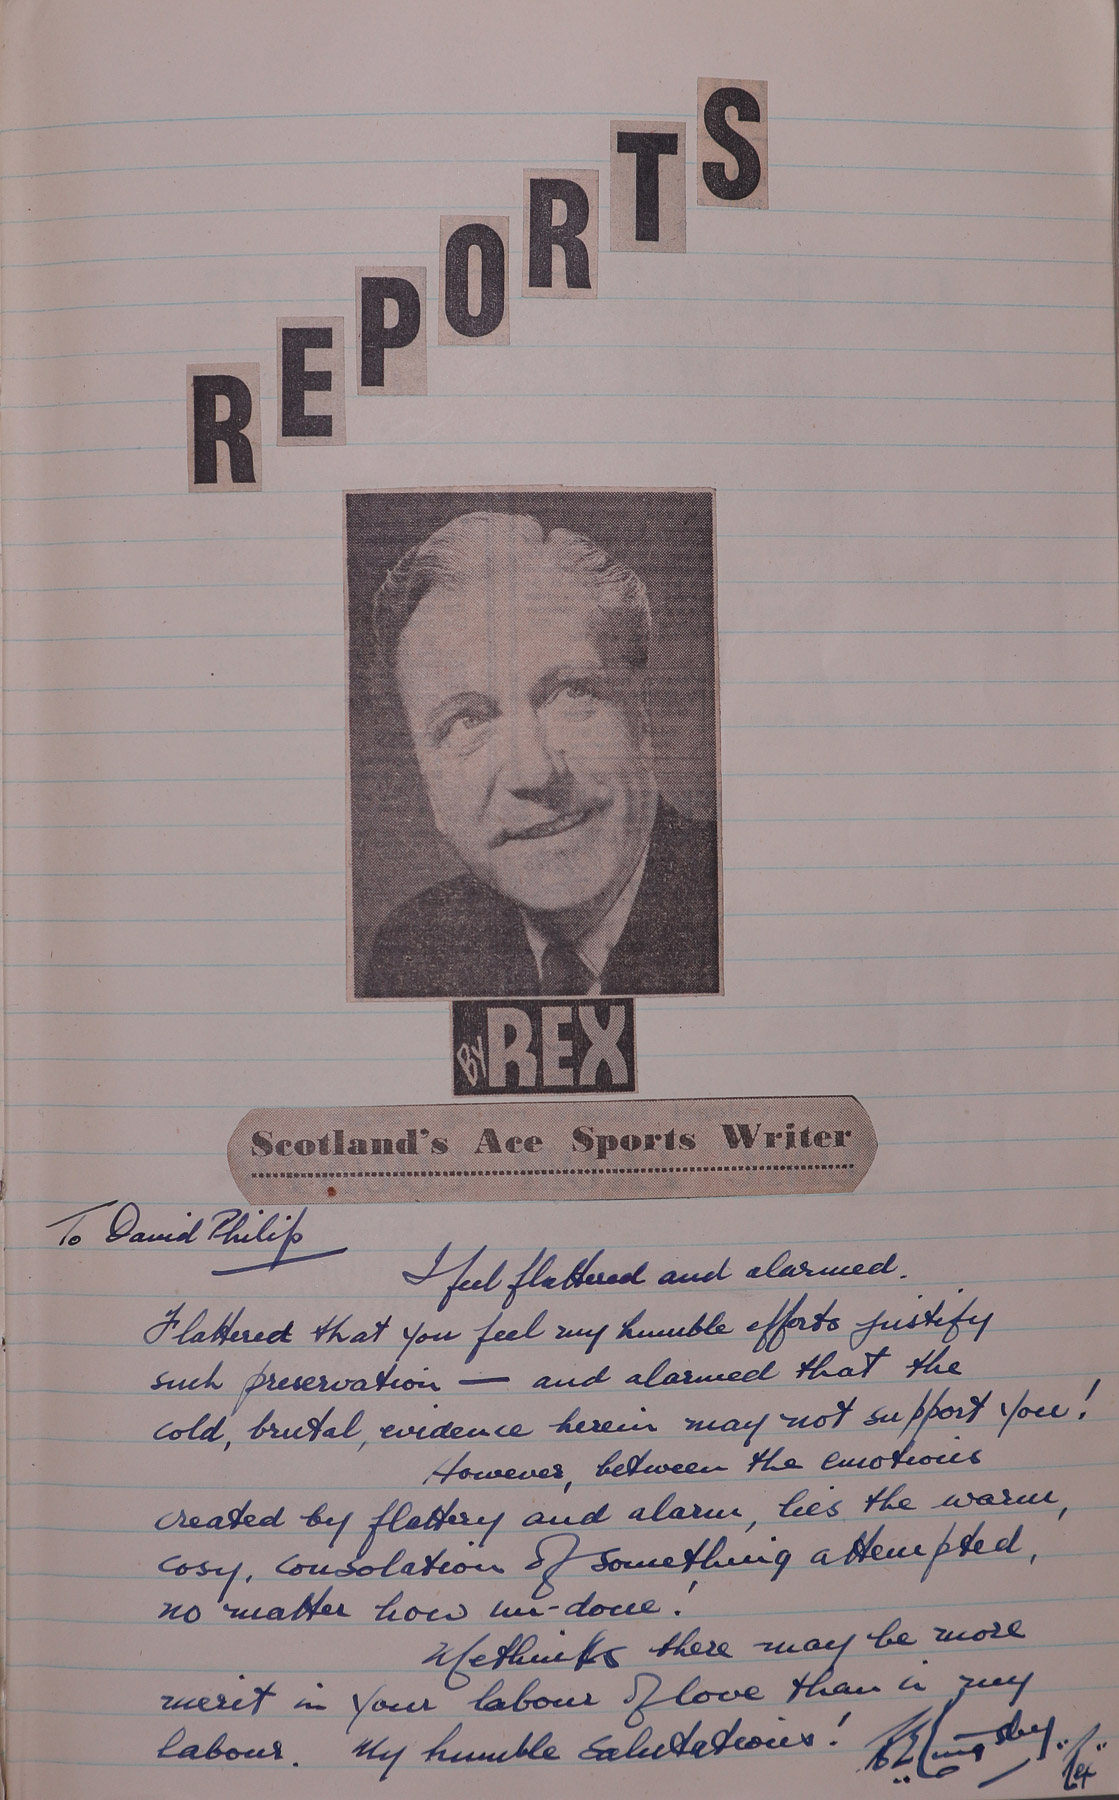 REPORTS
BY REX
Scotland's Ace Sports Writer
To David Philip
I feel flattered and alarmed.
Flattered that you feel my humble efforts justify
such preservation — and alarmed that the
cold, brutal, evidence herein may not support you!
However, between the emotions
created by flattery and alarm, lies the warm,
cosy, consolation of something attempted,
no matter how un-done!
Methinks there may be more
merit in your labour of love than in my
labour. My humble salutations!
"Rex"